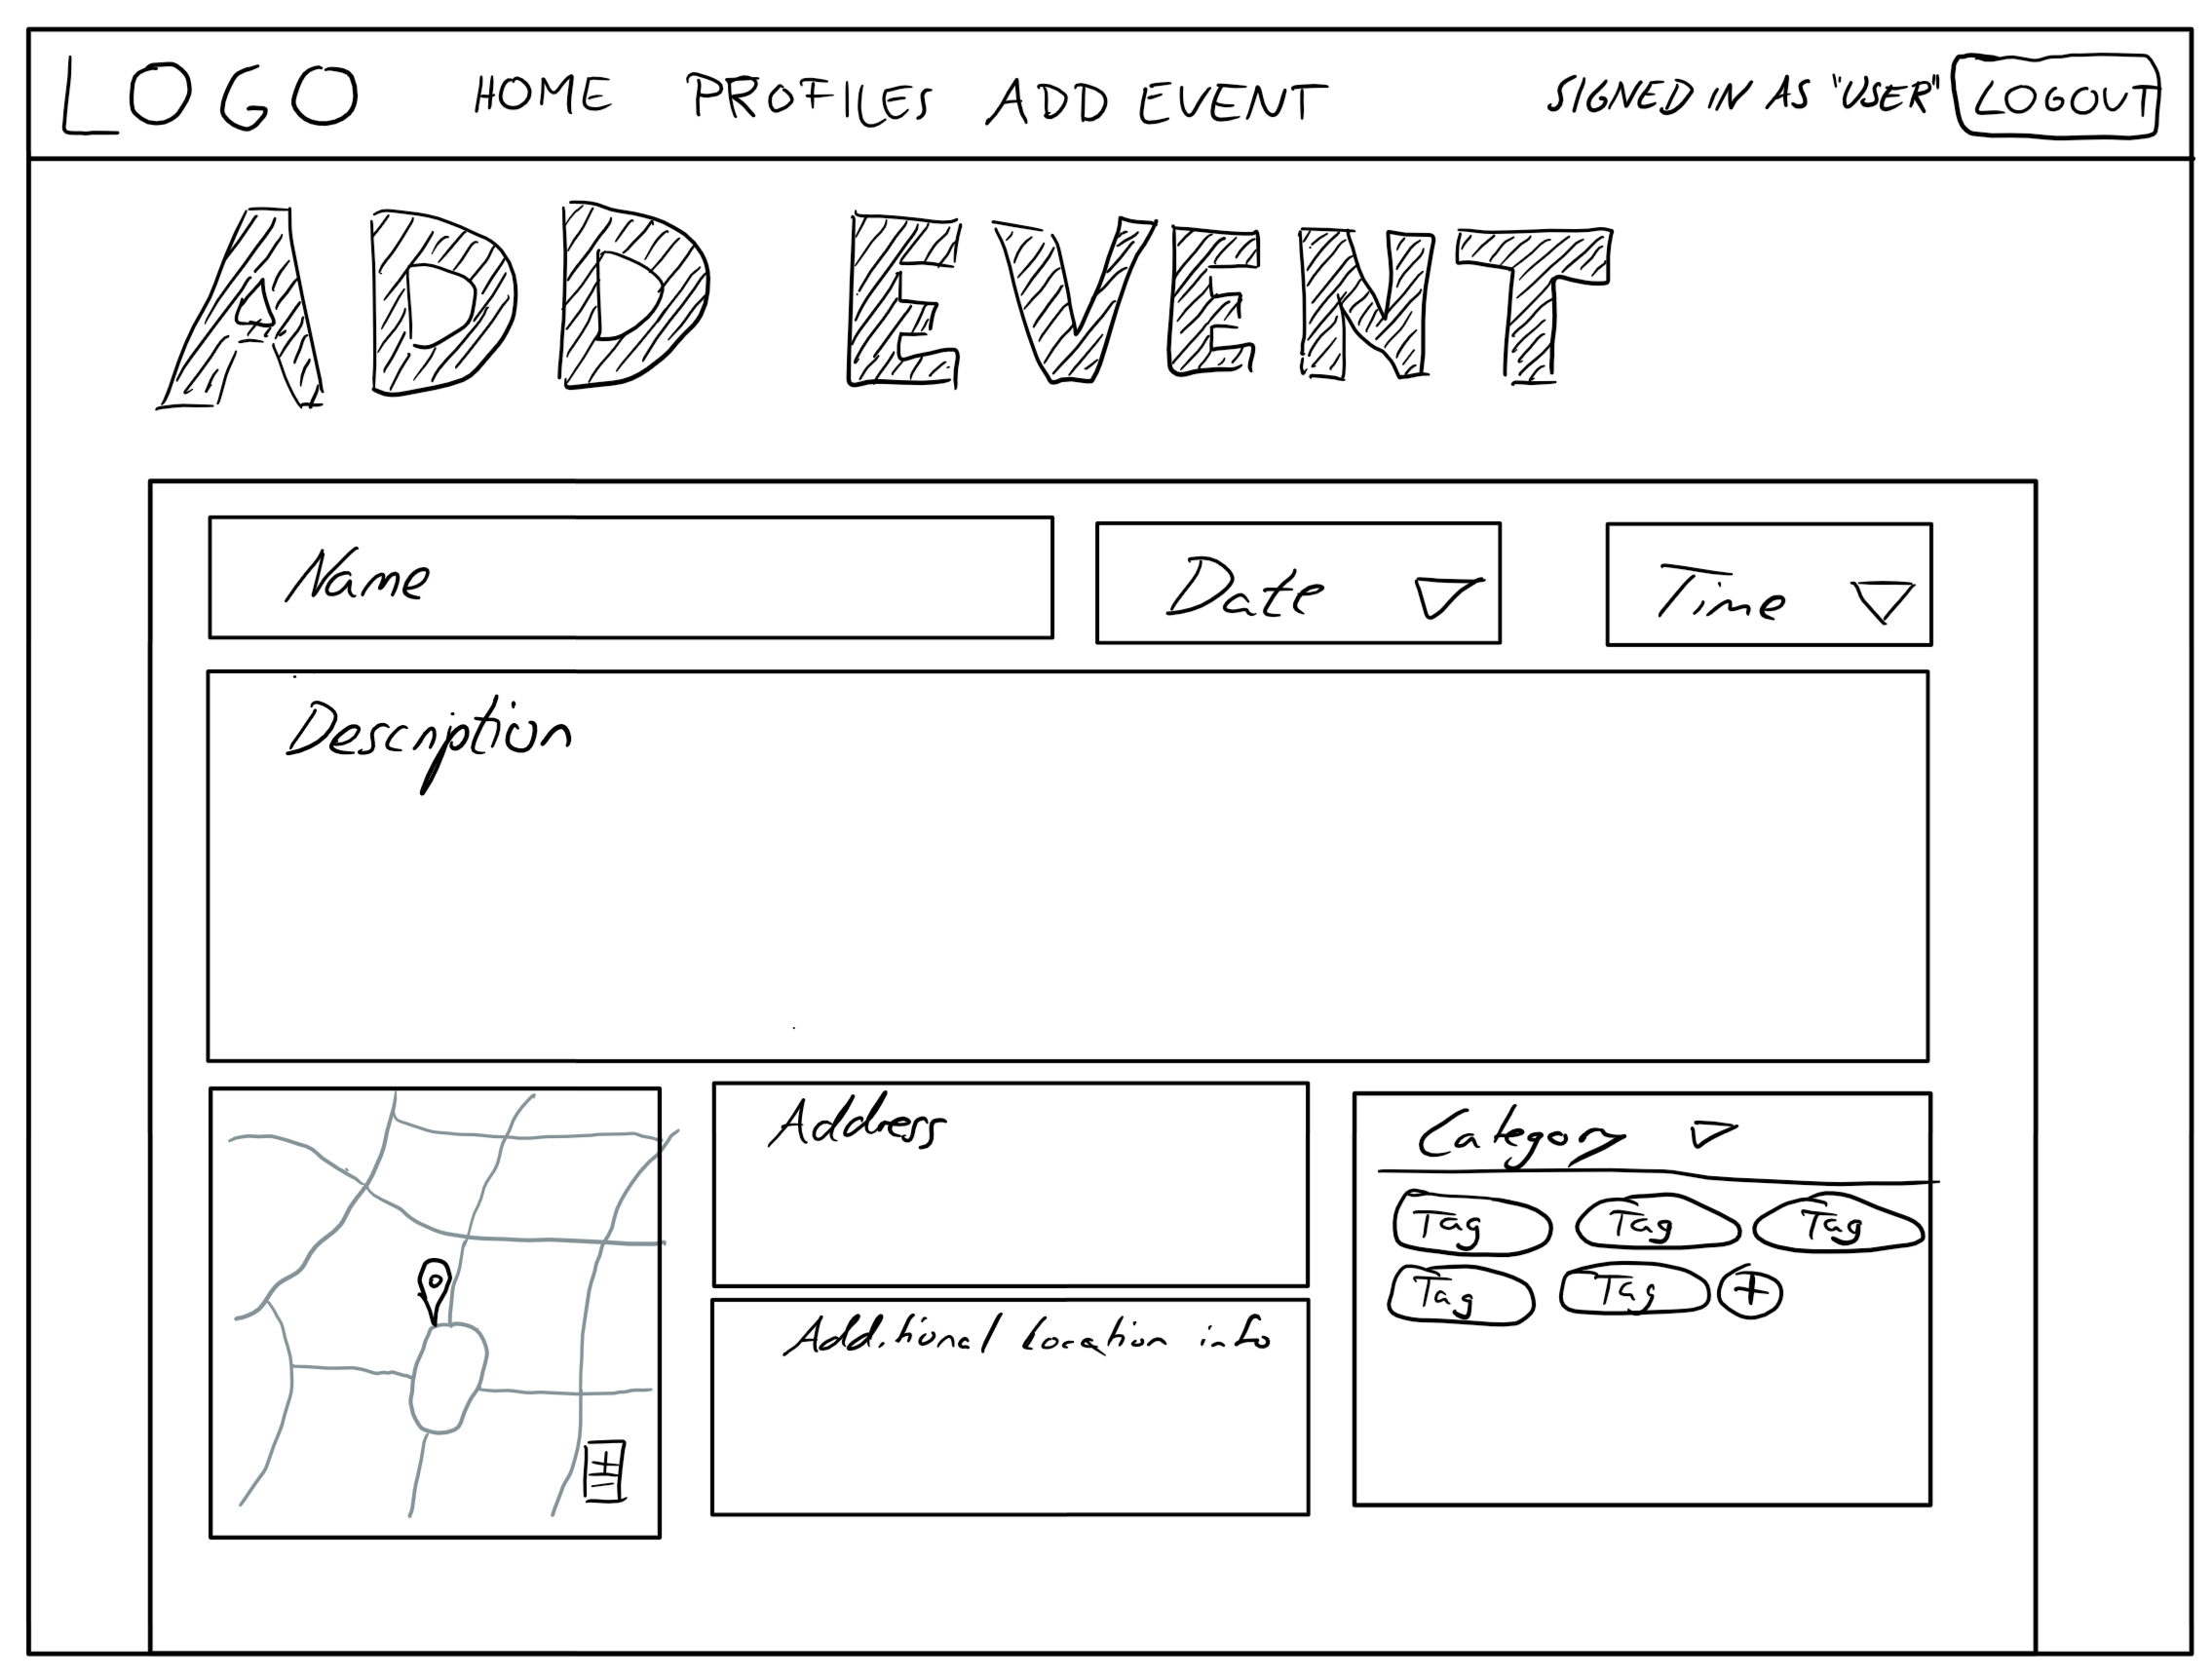 LOGO HOME PROFILES ADD EVENT SIGNED IN AS "USER" LOGOUT
ADD EVENT
Name Date Time
Description
Address
Additional location info
Category
Tag Tag Tag
Tag Tag +